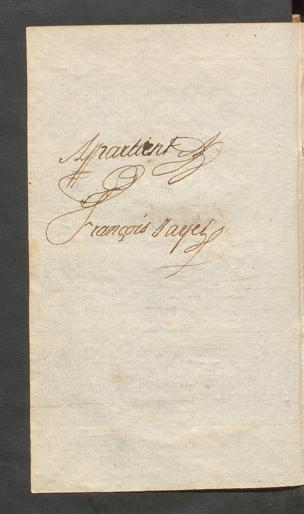 Appartient A
François Payel